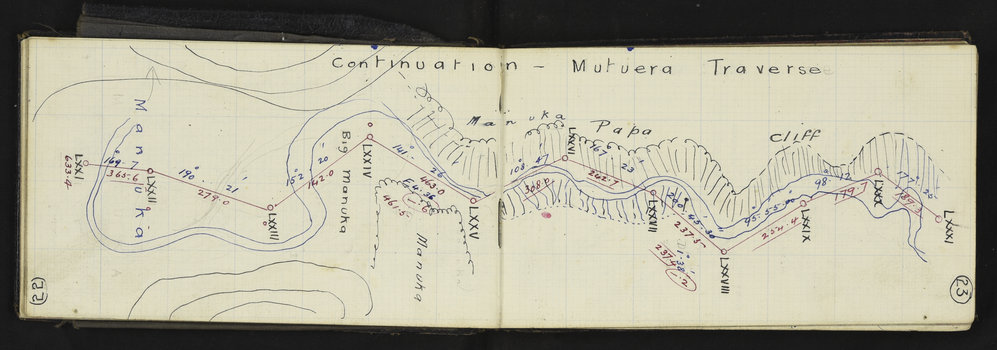 Continuation - Mutuera Traverse
Manuka
Papa
Cliff
Manuka
Big Manuka
Manuka
LXXI
633.4
169° 7
365.6
LXXII
190° 21
279.0
LXXIII
152° 20
142.0
LXXIV
141° 26
463.0
E 4.36
461.5
LXXV
108° 47
308.0
LXXVI
167° 23
262.7
LXXVII
45.30
237.5
1.38
237.4
.2
LXXVIII
45.55.00
252.4
LXXIX
98° 12
179.7
LXXX
189.3
LXXXI
22
23